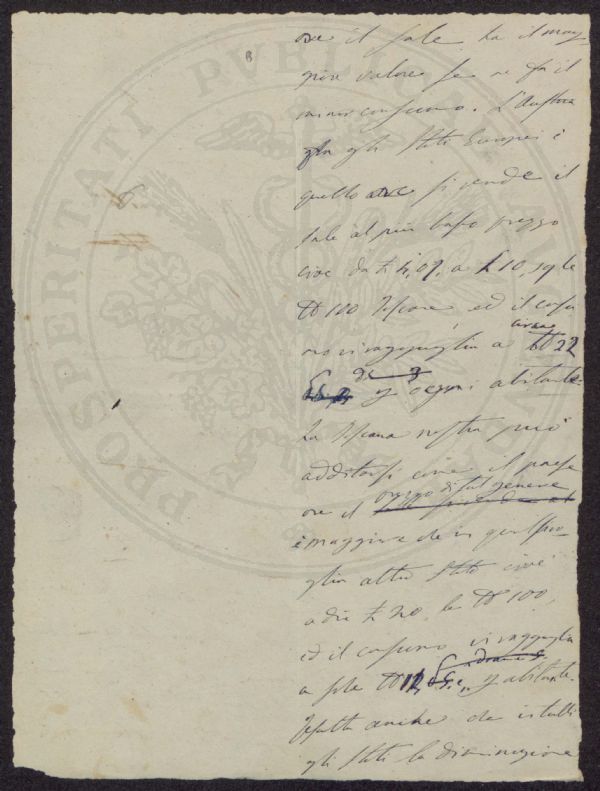 PROSPERITATI PVBLICAE
B
6
ove il sale ha il mag-
gior valore se ne fa il
minor consumo. L'Austria
fra gli Stati Europei è
quello ove si vende il
sale al più basso prezzo
cioè da £ 10
100 Toscane, ed il consu
mo si ragguaglia a circa 22
ogni abitante
La Toscana nostra può
additarsi come il paese
ove il prezzo di tal genere
è maggiore che in qualsivo-
glia altro Stato cioè
a di £ 20, le 100,
ed il consumo si ragguaglia
a sole abitante.
Resulta anche che in tutti
gli Stati la diminuzione